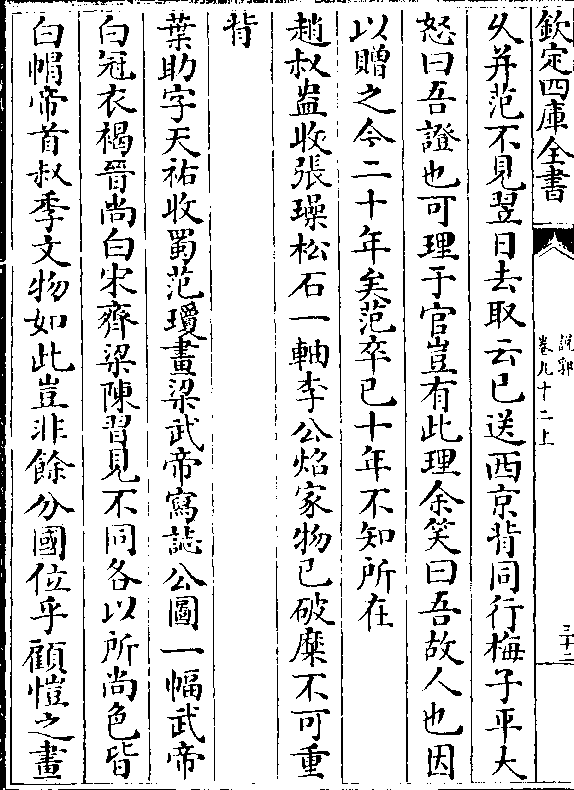 欽定四庫全書
說郛
卷九十二上
三十二
乆并范不見翌日去取云已送西京背同行梅子平大
怒曰吾證也可理于官豈有此理余笑曰吾故人也因
以贈之今二十年矣范卒已十年不知所在
趙叔盎收張璪松石一軸李公炤家物已破糜不可重
背
葉助字天祐收蜀范瓊畫梁武帝寫誌公圖一幅武帝
白冠衣褐晉尚白宋齊梁陳習見不同各以所尚色皆
白帽帝首叔季文物如此豈非餘分國位乎顧愷之畫